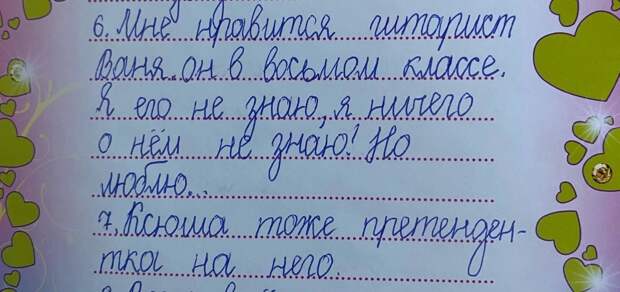 6. Мне нравится гитарист
Ваня. он в восьмом классе.
Я его не знаю, я ничего
о нём не знаю! Но
люблю...
7. Ксюша тоже претенден-
тка на него.